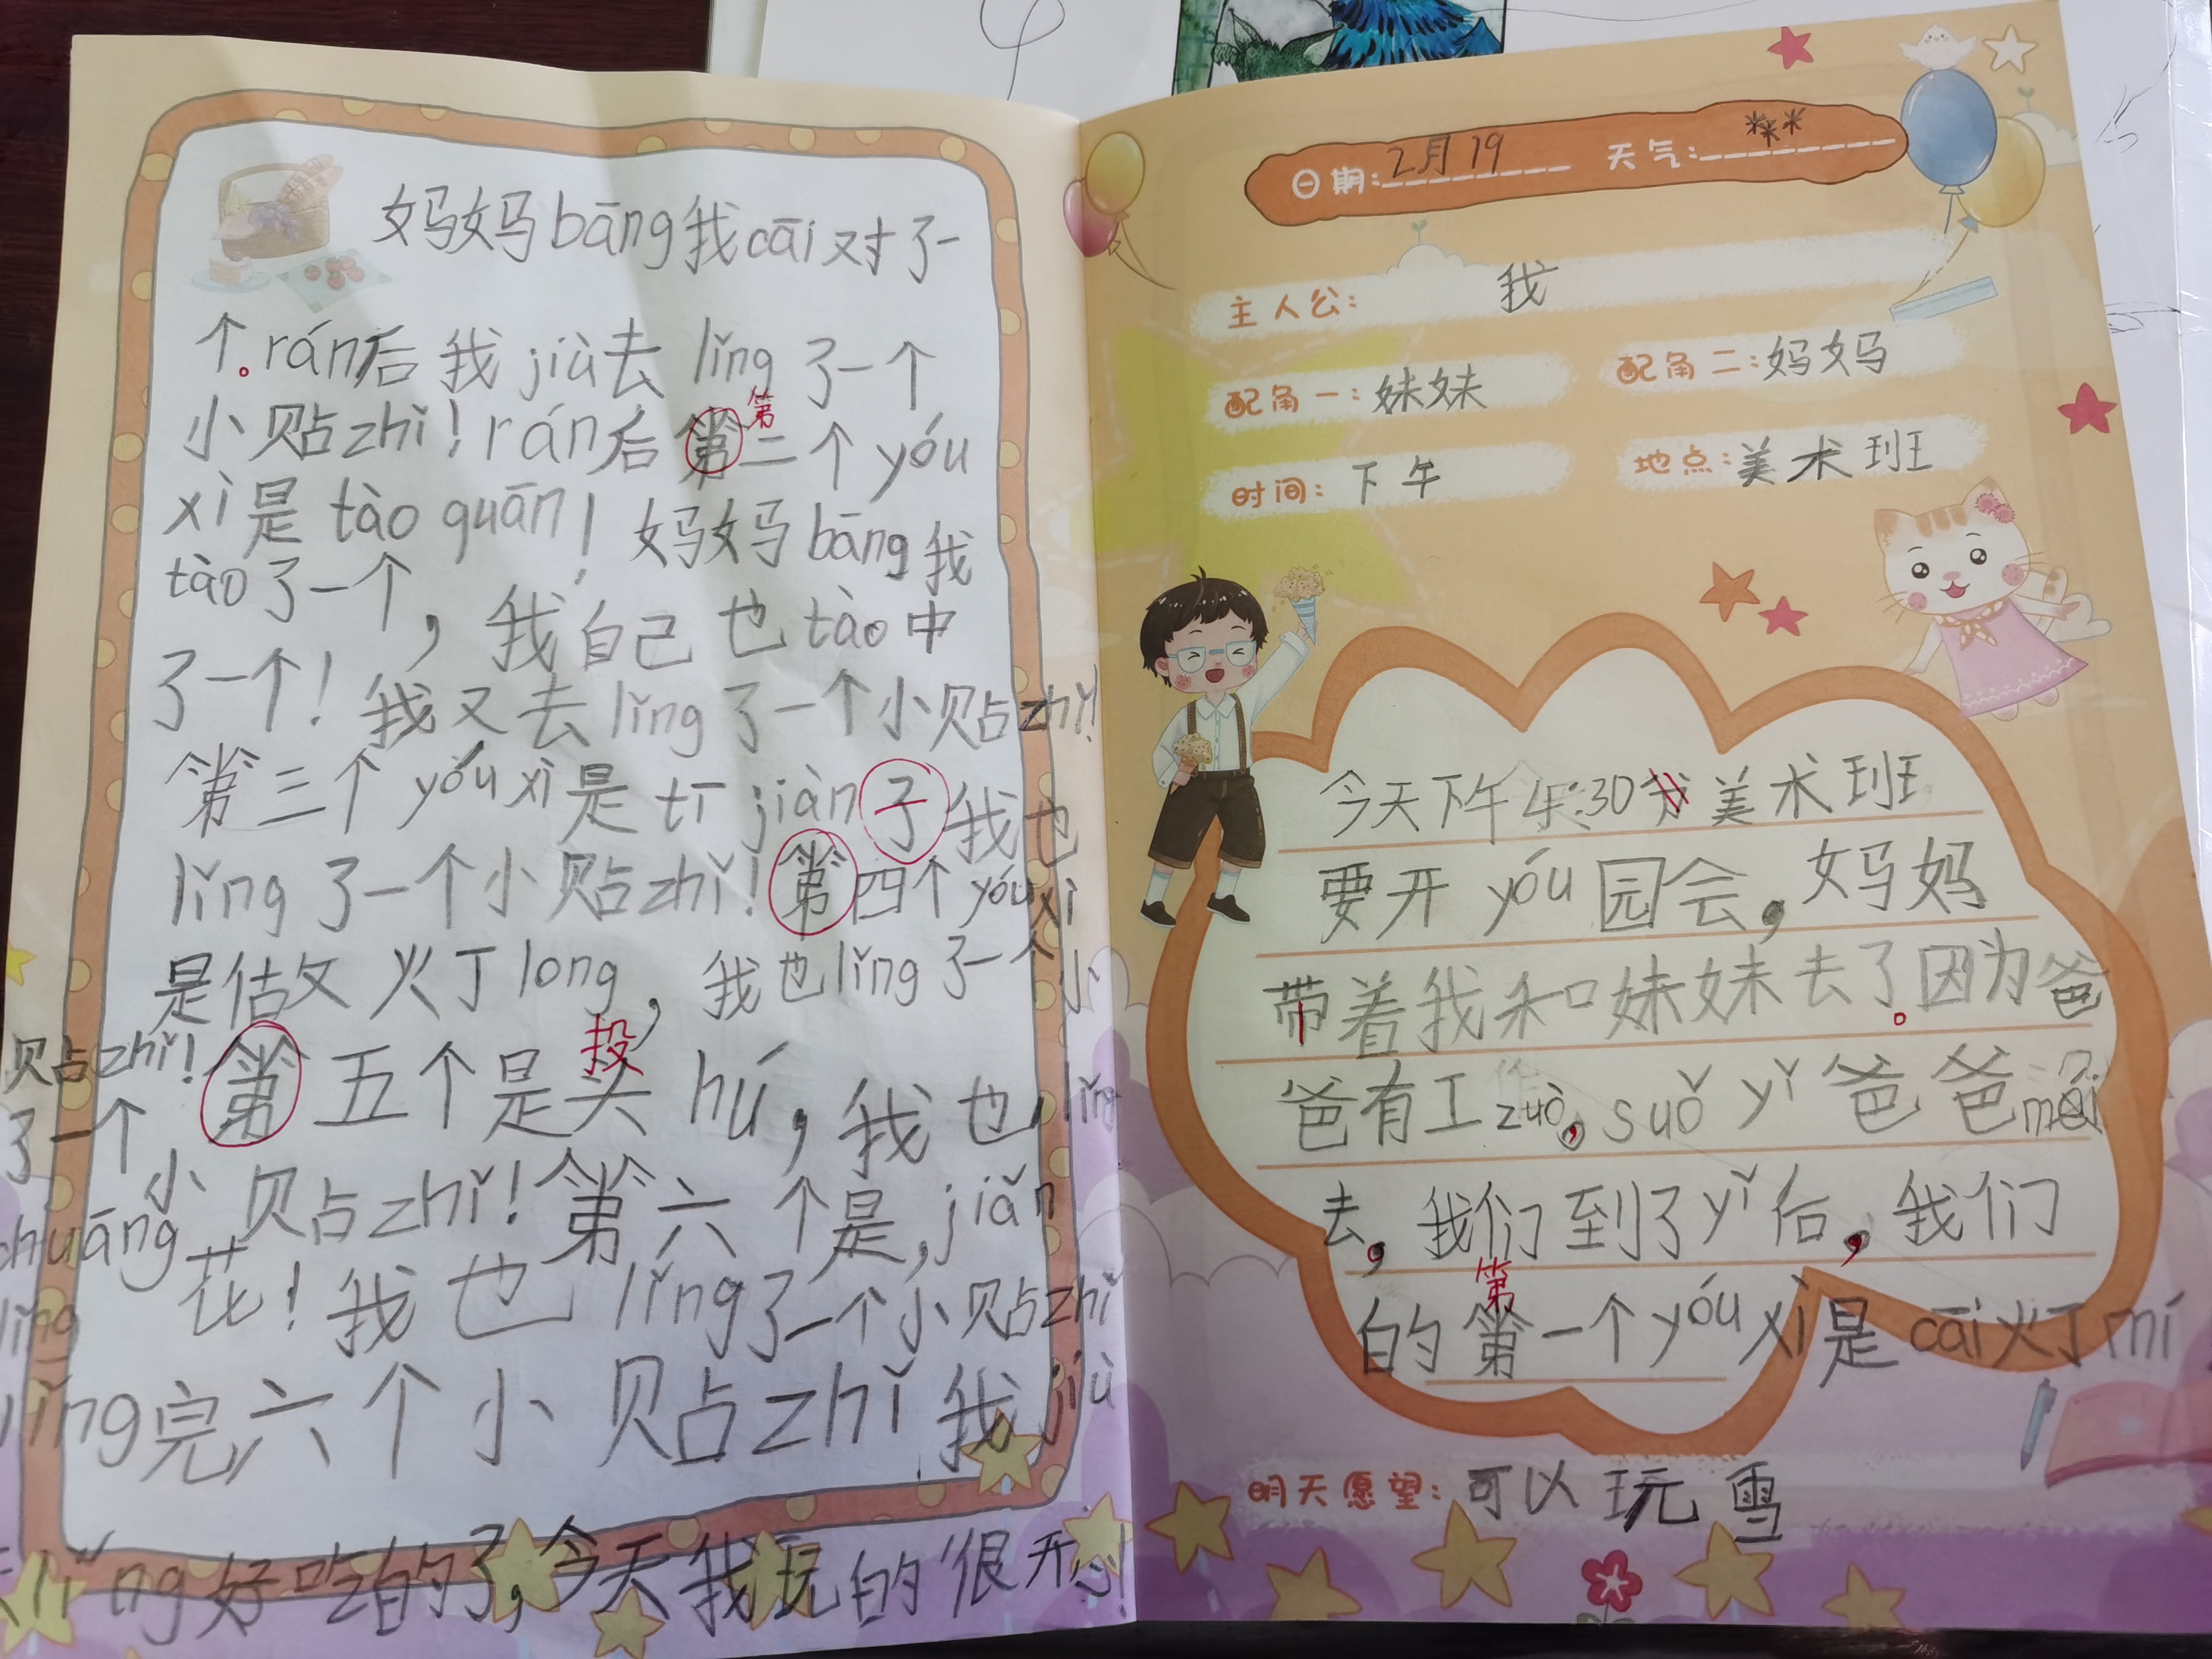 妈妈bāng我cāi对了一
个。rán后我jiù去lǐng了一个
第
小贴zhǐ！rán后第二个yóu
xì是tào quān！妈妈bāng我
tào了一个，我自己也tào中
了一个！我又去lǐng了一个小贴zhǐ！
第三个yóuxì是tī jiàn子我也
lǐng了一个小贴zhǐ！第四个yóuxì
是估文火丁long，我也lǐng了一个小
投
贴zhǐ！第五个是头hú，我也lǐng
了一个小贴zhǐ！第六个是，jiǎn
chuāng花！我也lǐng了一个小贴zhǐ
lǐng完，六个小贴zhǐ我jiù
去lǐng好吃的了，今天我玩的很开心！
日期：2月19 天气：
主人公：我
配角一：妹妹 配角二：妈妈
时间：下午 地点：美术班
今天下午4:30美术班
要开yóu园会，妈妈
带着我和妹妹去了。因为爸
爸有工zuò，suǒ yǐ爸爸méi
去，我们到了yǐ后，我们
第
的第一个yóu xì是cāi火丁mí
明天愿望：可以玩雪